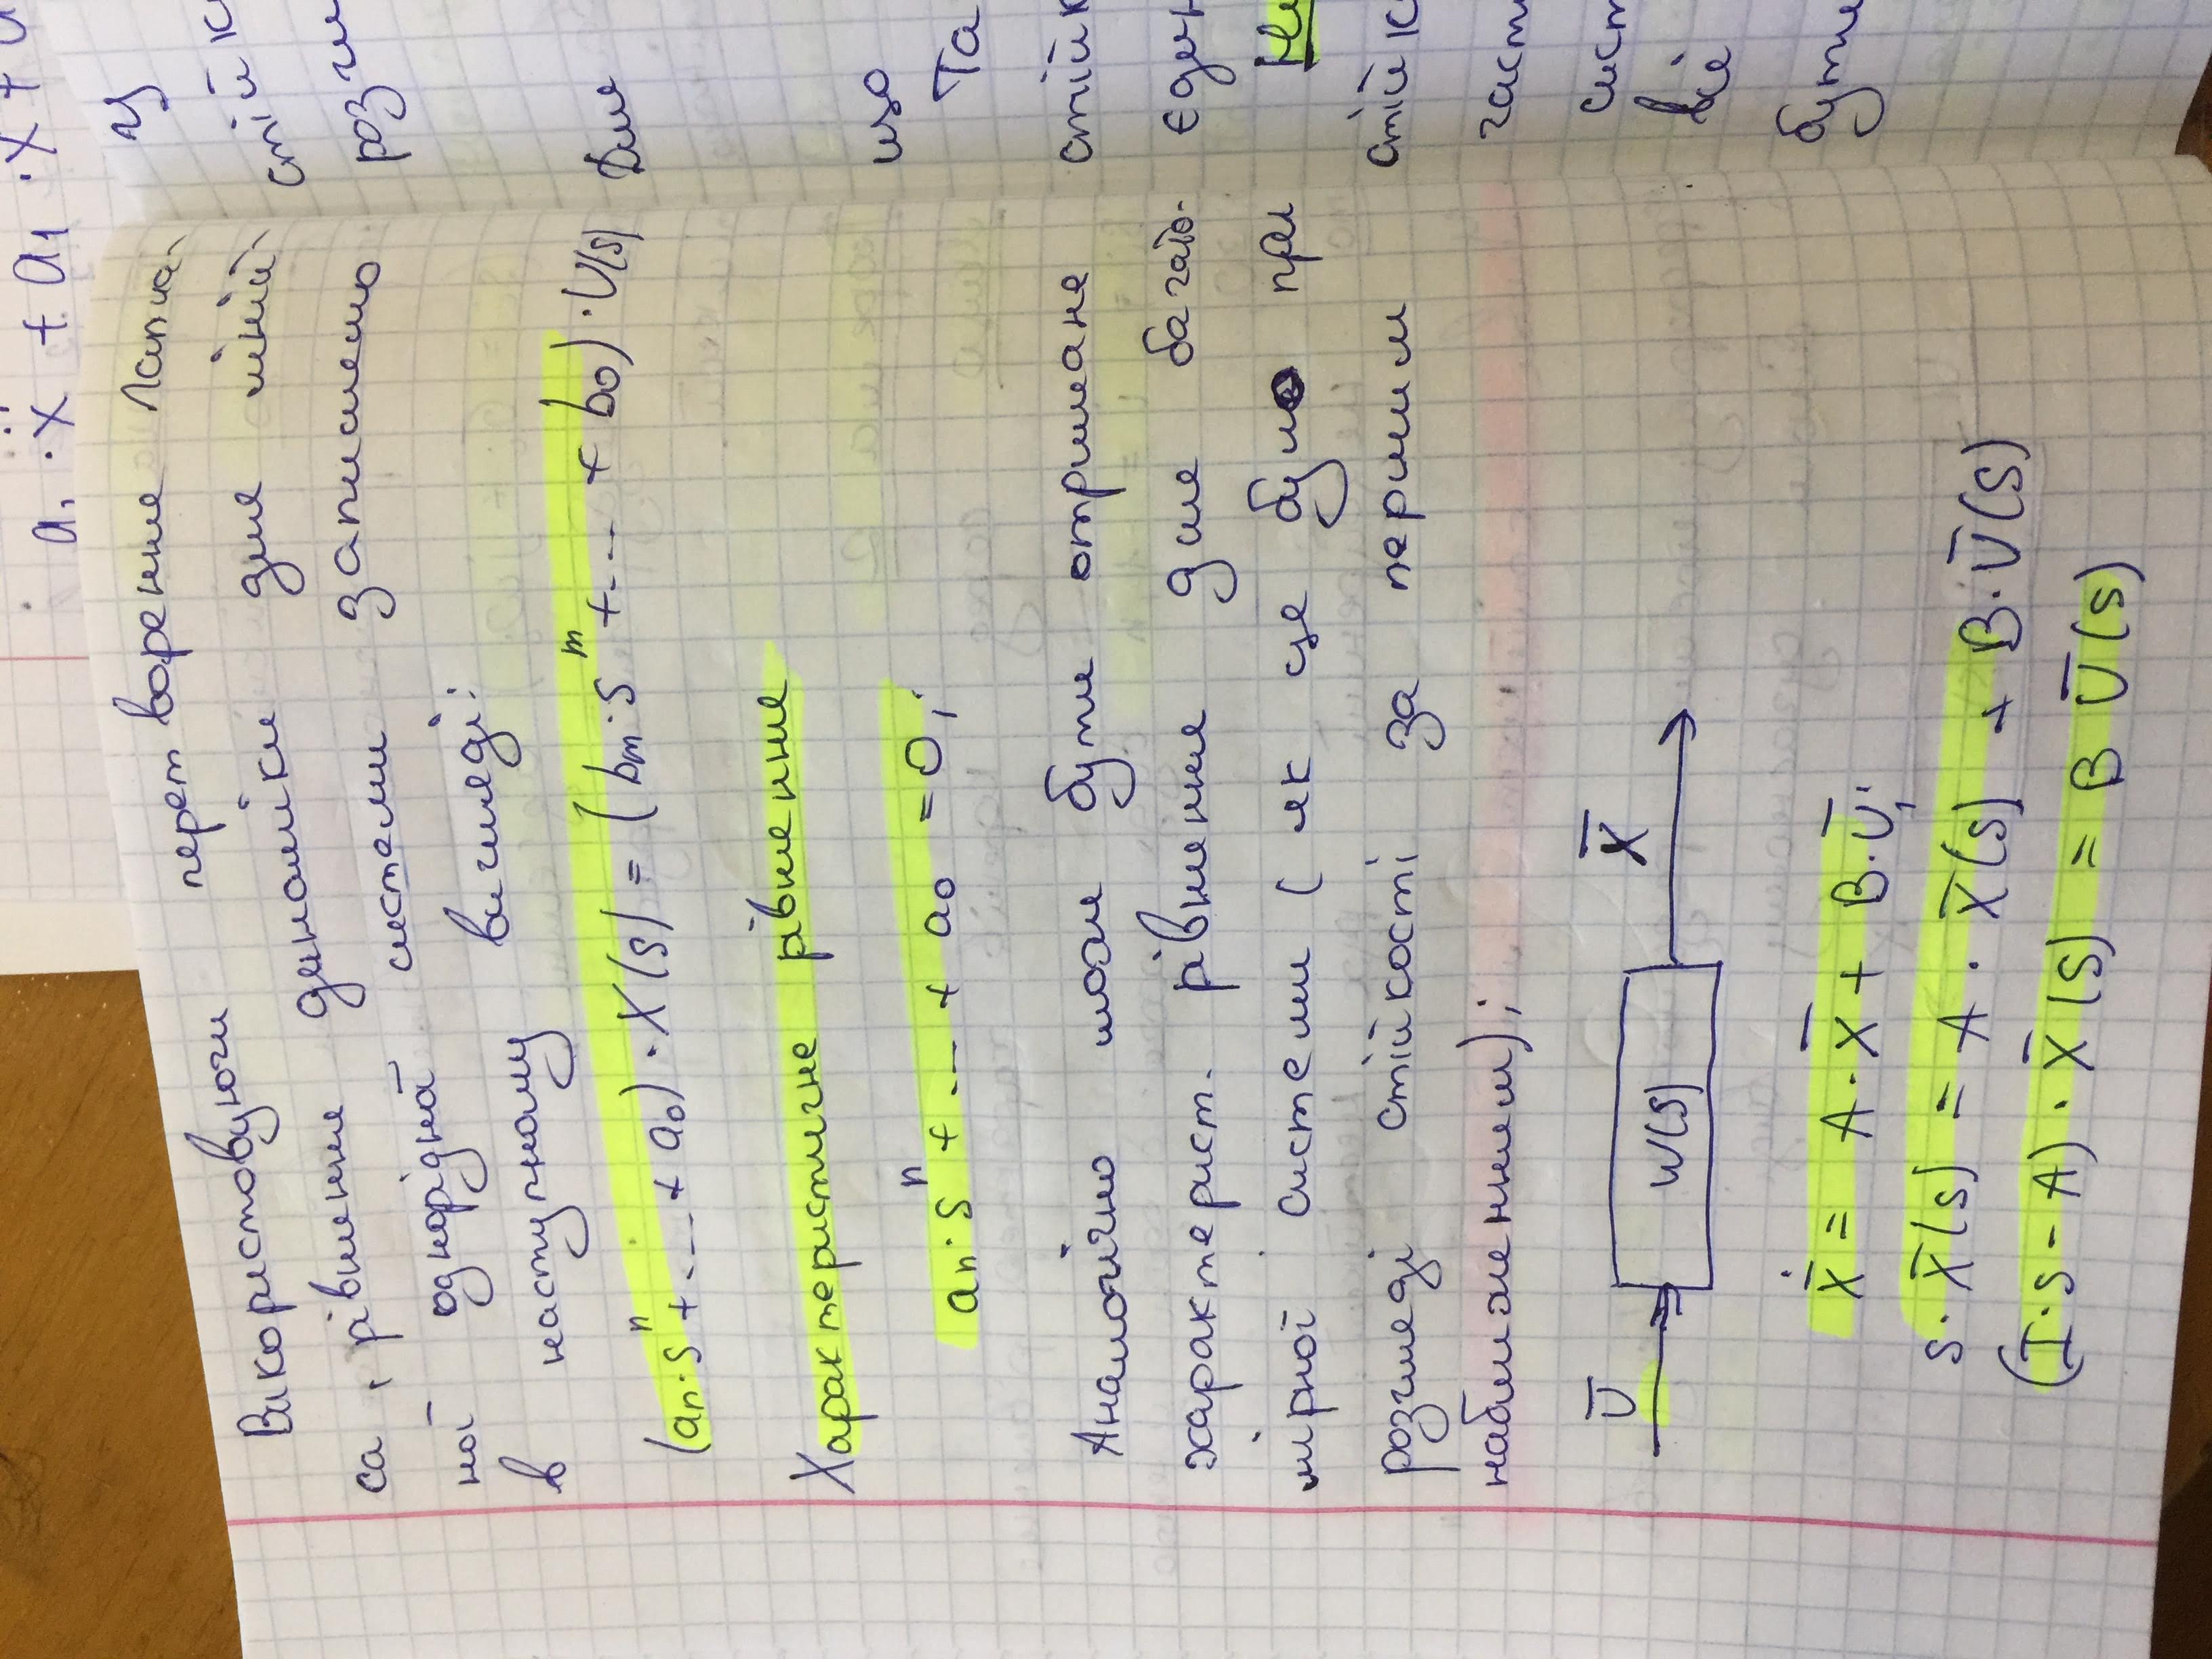 a₁ · ẍ + a₁ · x +
Використовуючи перетворення Лапла-
са, рівняння динаміки для ліній-
ної однорідної системи запишемо
в наступному вигляді:
(aₙ·sⁿ + ... + a₀) · X(s) = (bₘ·sᵐ + ... + b₀) · U(s)
Характеристичне рівняння
aₙ·sⁿ + ... + a₀ = 0;
Аналогічно може бути отримане
характерист. рівняння для багато-
мірної системи (як це було при
розгляді стійкості за першим
наближенням);
U̅ W(s) X̅
Ẋ̅ = A·X̅ + B·U̅;
s·X̅(s) = A · X̅(s) + B·U̅(s)
(I·s - A) · X̅(s) = B U̅(s)
У
стійк
розгл
Для
що
Та
стійк
єдин
стійк
част
сист
всі
бути